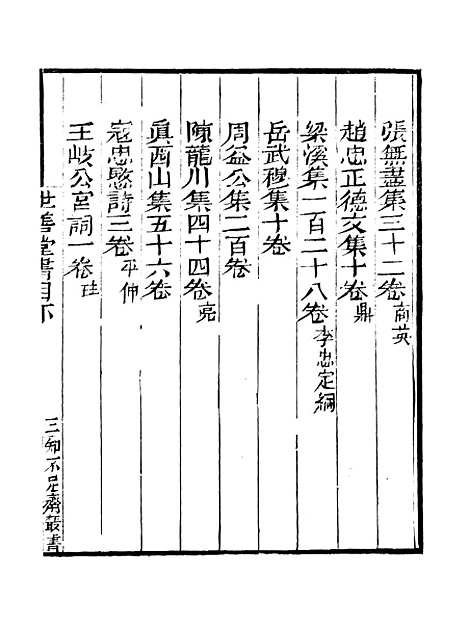 張無盡集三十二卷商英
趙忠正德文集十卷鼎
梁溪集一百二十八卷李忠定綱
岳武穆集十卷
周益公集二百卷
陳龍川集四十四卷亮
眞西山集五十六卷
寇忠愍詩三卷平仲
王岐公宮詞一卷珪
世善堂書目下
知不足齋叢書